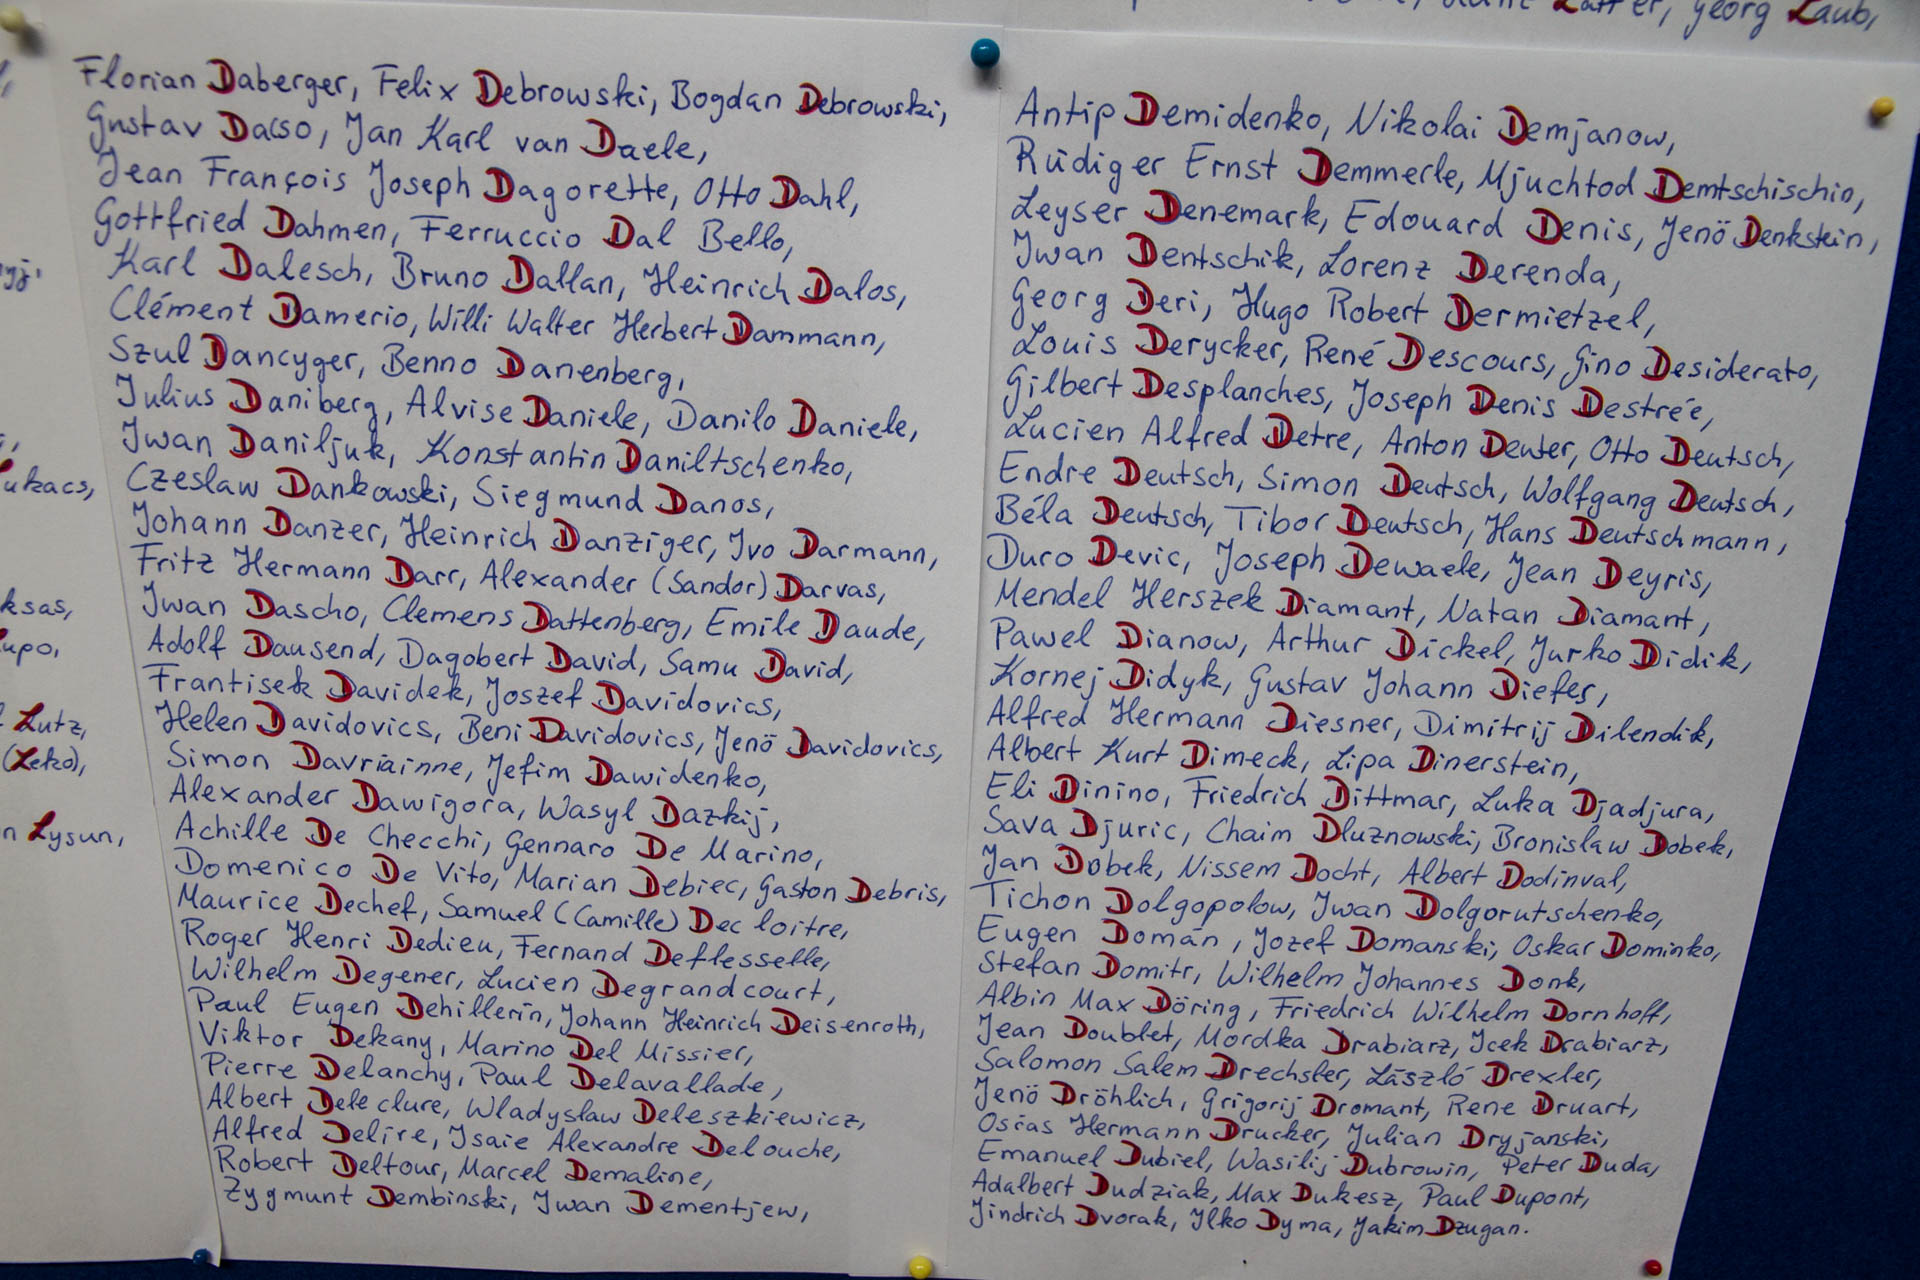 Georg Laub,
Lukacs,
ksas,
Lupo,
Lutz,
(Leko),
n Lysun,
Florian Daberger, Felix Debrowski, Bogdan Debrowski,
Gustav Dacso, Jan Karl van Daele,
Jean François Joseph Dagorette, Otto Dahl,
Gottfried Dahmen, Ferruccio Dal Bello,
Karl Dalesch, Bruno Dallan, Heinrich Dalos,
Clément Damerio, Willi Walter Herbert Dammann,
Szul Dancyger, Benno Danenberg,
Julius Daniberg, Alvise Daniele, Danilo Daniele,
Iwan Daniljuk, Konstantin Daniltschenko,
Czeslaw Dankowski, Siegmund Danos,
Johann Danzer, Heinrich Danziger, Ivo Darmann,
Fritz Hermann Darr, Alexander (Sandor) Darvas,
Iwan Dascho, Clemens Dattenberg, Emile Daude,
Adolf Dausend, Dagobert David, Samu David,
Frantisek Davidek, Joszef Davidovics,
Helen Davidovics, Beni Davidovics, Jenö Davidovics,
Simon Davriainne, Jefim Dawidenko,
Alexander Dawigora, Wasyl Dazkij,
Achille De Checchi, Gennaro De Marino,
Domenico De Vito, Marian Debiec, Gaston Debris,
Maurice Dechef, Samuel (Camille) Decloitre,
Roger Henri Dedieu, Fernand Deflesselle,
Wilhelm Degener, Lucien Degrandcourt,
Paul Eugen Dehillerin, Johann Heinrich Deisenroth,
Viktor Dekany, Marino Del Missier,
Pierre Delanchy, Paul Delavallade,
Albert Deleclure, Wladyslaw Deleszkiewicz,
Alfred Delire, Isaie Alexandre Delouche,
Robert Deltour, Marcel Demaline,
Zygmunt Dembinski, Iwan Dementjew,
Antip Demidenko, Nikolai Demjanow,
Rüdiger Ernst Demmerle, Mjuchtod Demtschischin,
Leyser Denemark, Edouard Denis, Jenö Denkstein,
Iwan Dentschik, Lorenz Derenda,
Georg Deri, Hugo Robert Dermietzel,
Louis Derycker, René Descours, Gino Desiderato,
Gilbert Desplanches, Joseph Denis Destrée,
Lucien Alfred Detre, Anton Deuter, Otto Deutsch,
Endre Deutsch, Simon Deutsch, Wolfgang Deutsch,
Béla Deutsch, Tibor Deutsch, Hans Deutschmann,
Duro Devic, Joseph Dewaele, Jean Deyris,
Mendel Herszek Diamant, Natan Diamant,
Pawel Dianow, Arthur Dickel, Jurko Didik,
Kornej Didyk, Gustav Johann Diefes,
Alfred Hermann Diesner, Dimitrij Dilendik,
Albert Kurt Dimeck, Lipa Dinerstein,
Eli Dinino, Friedrich Dittmar, Luka Djadjura,
Sava Djuric, Chaim Dluznowski, Bronislaw Dobek,
Jan Dobek, Nissem Docht, Albert Dodinval,
Tichon Dolgopolow, Iwan Dolgorutschenko,
Eugen Domán, Jozef Domanski, Oskar Dominko,
Stefan Domitr, Wilhelm Johannes Donk,
Albin Max Döring, Friedrich Wilhelm Dornhoff,
Jean Doublet, Mordka Drabiarz, Icek Drabiarz,
Salomon Salem Drechsler, László Drexler,
Jenö Dröhlich, Grigorij Dromant, Rene Druart,
Osias Hermann Drucker, Julian Dryjanski,
Emanuel Dubiel, Wasilij Dubrowin, Peter Duda,
Adalbert Dudziak, Max Dukesz, Paul Dupont,
Jindrich Dvorak, Ilko Dyma, Jakim Dzugan.